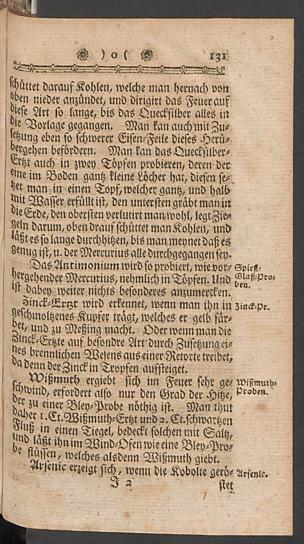 ❀ ) o ( ❀ 131
schüttet darauf Kohlen, welche man hernach von
oben nieder anzündet, und dirigirt das Feuer auf
diese Art so lange, bis das Quecksilber alles in
die Vorlage gegangen. Man kan auch mit Zu-
setzung eben so schwerer Eisen-Feile dieses Herü-
bergehen befördern. Man kan das Quecksilber-
Ertzt auch in zwey Töpfen probieren, deren der
eine im Boden gantz kleine Löcher hat, diesen se-
tzet man in einen Topf, welcher gantz, und halb
mit Wasser erfüllt ist, den untersten gräbt man in
die Erde, den obersten verlutirt man wohl, legt Zie-
geln darum, oben drauf schüttet man Kohlen, und
läßt es so lange durchhitzen, bis man meynet daß es
genug ist, u. der Mercurius alle durchgegangen sey.
Das Antimonium wird so probirt, wie vor-
hergehender Mercurius, nehmlich in Töpfen. Und
ist dabey weiter nichts besonderes anzumercken.
Spieß-
Glaß-Pro-
ben.
Zinck-Ertzt wird erkennet, wenn man ihn in
geschmoltzenes Kupfer trägt, welches er gelb fär-
bet, und zu Meßing macht. Oder wenn man die
Zinck-Ertzte auf besondre Art durch Zusetzung ei-
nes brennlichen Wesens aus einer Retorte treibet,
da denn der Zinck in Tropfen aufsteiget.
Zinck-Pr.
Wißmuth ergiebt sich im Feuer sehr ge-
schwind, erfordert also nur den Grad der Hitze,
der zu einer Bley-Probe nöthig ist. Man thut
daher 1. Ct. Wißmuth-Ertzt und 2. Ct. schwartzen
Fluß in einen Tiegel, bedeckt solchen mit Saltz,
und läßt ihn im Wind-Ofen wie eine Bley-Pro-
be flüssen, welches alsdenn Wißmuth giebt.
Wißmuth-
Proben.
Arsenic erzeigt sich, wenn die Kobolte gerö-
Arsenic.
J 2 stet